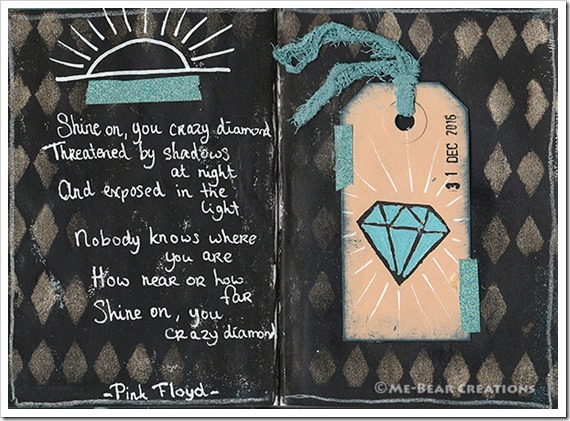 Shine on, you crazy diamond
Threatened by shadows
at night
And exposed in the
light
Nobody knows where
you are
How near or how
far
Shine on, you
crazy diamond
-Pink Floyd-
31 DEC 2016
©ME-BEAR CREATIONS